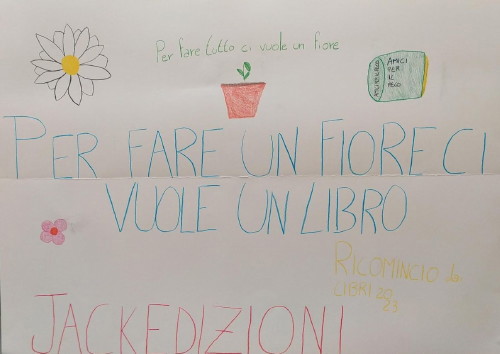 Per fare tutto ci vuole un fiore
AMICI
PER
IL
PER FARE UN FIORE CI
VUOLE UN LIBRO
RICOMINCIO da
LIBRI 20
23
JACKEDIZIONI